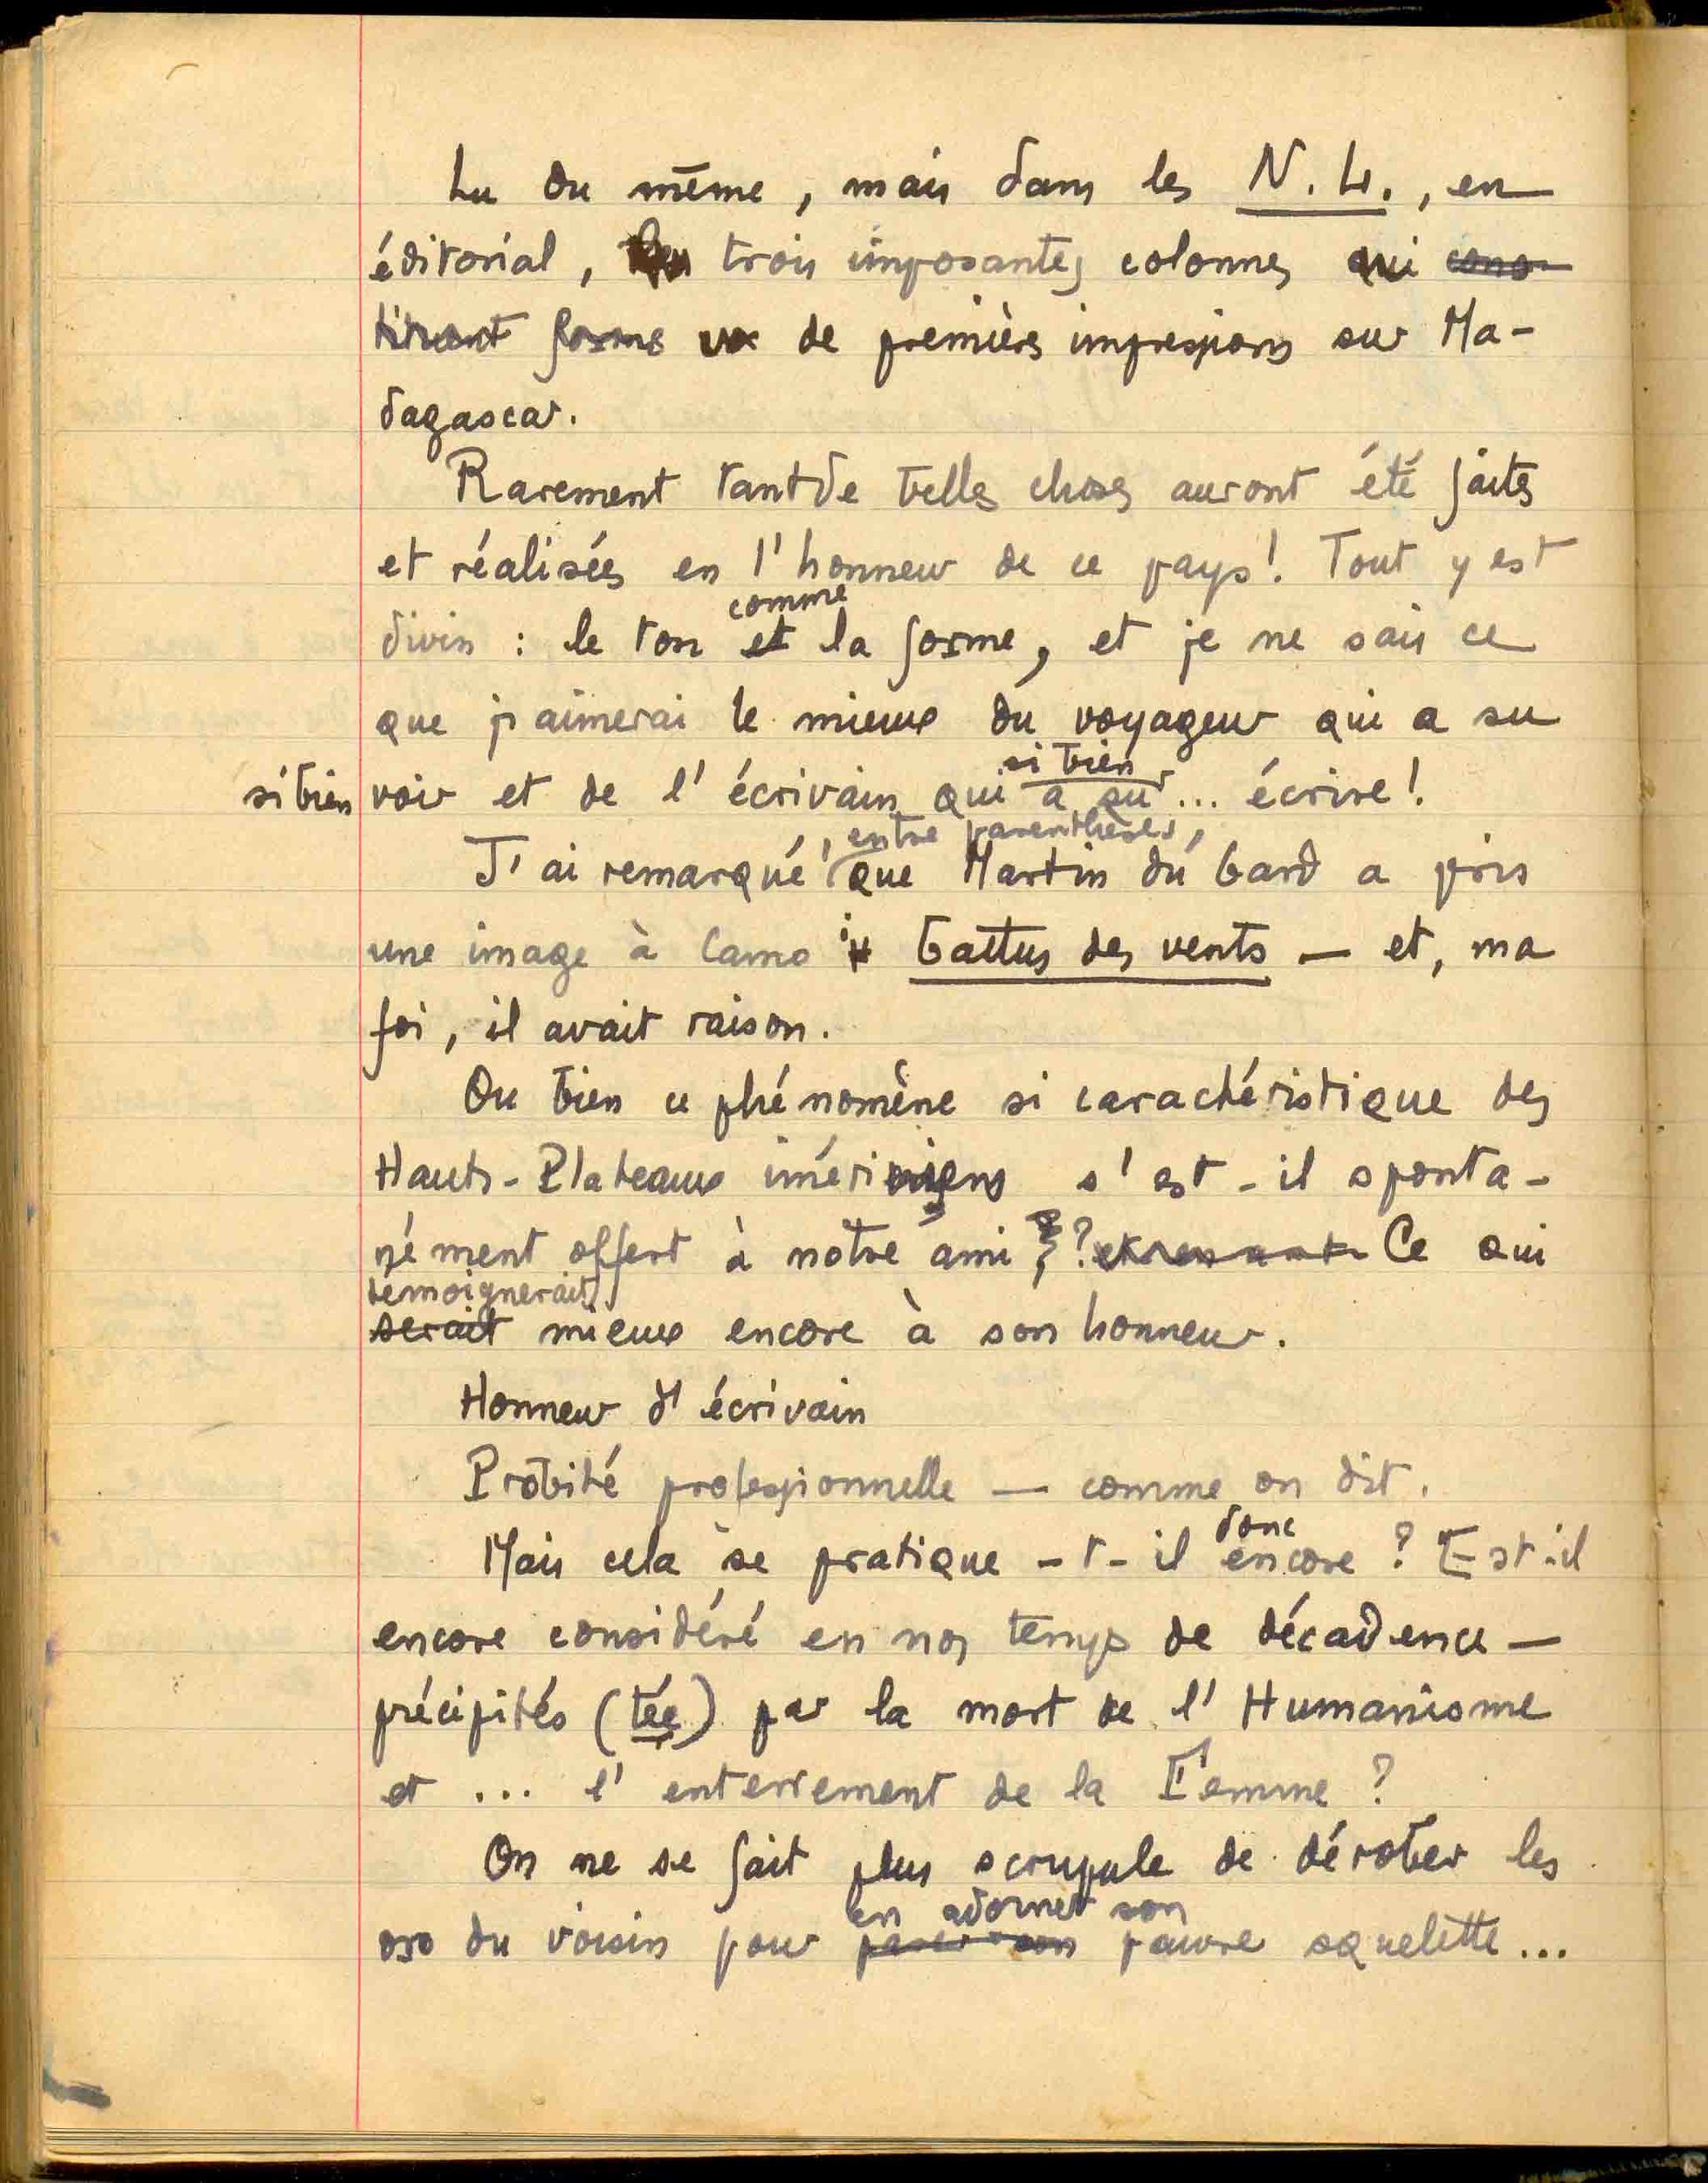 Lu du même, mais dans les N. L., en
éditorial, trois imposantes colonnes qui cons-
tituent forme de premières impressions sur Ma-
dagascar.
Rarement tant de belles choses auront été faites
et réalisées en l'honneur de ce pays! Tout y est
comme
divin : le ton et la forme, et je ne sais ce
que j'aimerai le mieux du voyageur qui a su
si bien
si bien voir et de l'écrivain qui a su... écrire!
, entre parenthèses,
J'ai remarqué que Martin du Gard a pris
une image à Camo : battus des vents — et, ma
foi, il avait raison.
Ou bien ce phénomène si caractéristique des
Hauts-Plateaux imériniens s'est-il sponta-
nément offert à notre ami ? Ce qui
témoignerait
serait mieux encore à son honneur.
Honneur d'écrivain
Probité professionnelle — comme on dit.
donc
Mais cela se pratique-t-il encore ? Est-il
encore considéré en nos temps de décadence —
précipités (tée) par la mort de l'Humanisme
et ... l'enterrement de la Femme ?
On ne se fait plus scrupule de dérober les
en adorner son
os du voisin pour parer son pauvre squelette...